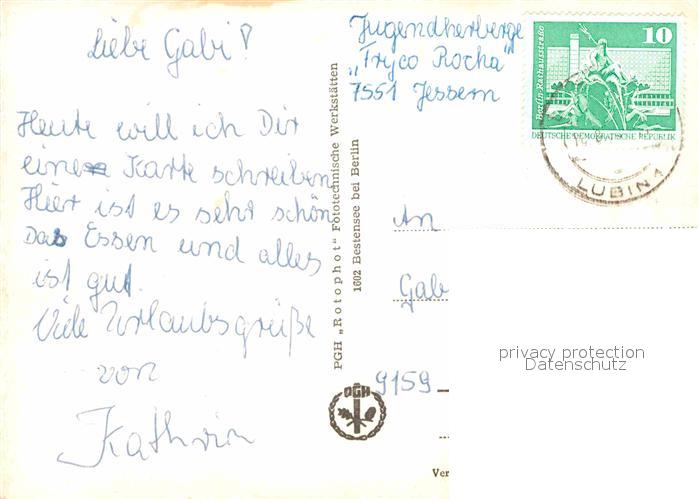 Liebe Gabi!
Heute will ich Dir
eine Karte schreiben
Hier ist es sehr schön
Das Essen und alles
ist gut.
Viele Urlaubsgrüße
von
Kathrin
PGH „Rotophot“ Fototechnische Werkstätten
1602 Bestensee bei Berlin
PGH
Jugendherberge
„Fryco Rocha“
7551 Jessern
Berlin-Rathausstraße
10
DEUTSCHE DEMOKRATISCHE REPUBLIK
LUBIN 1
An
Gab
privacy protection
Datenschutz
9159
Ver